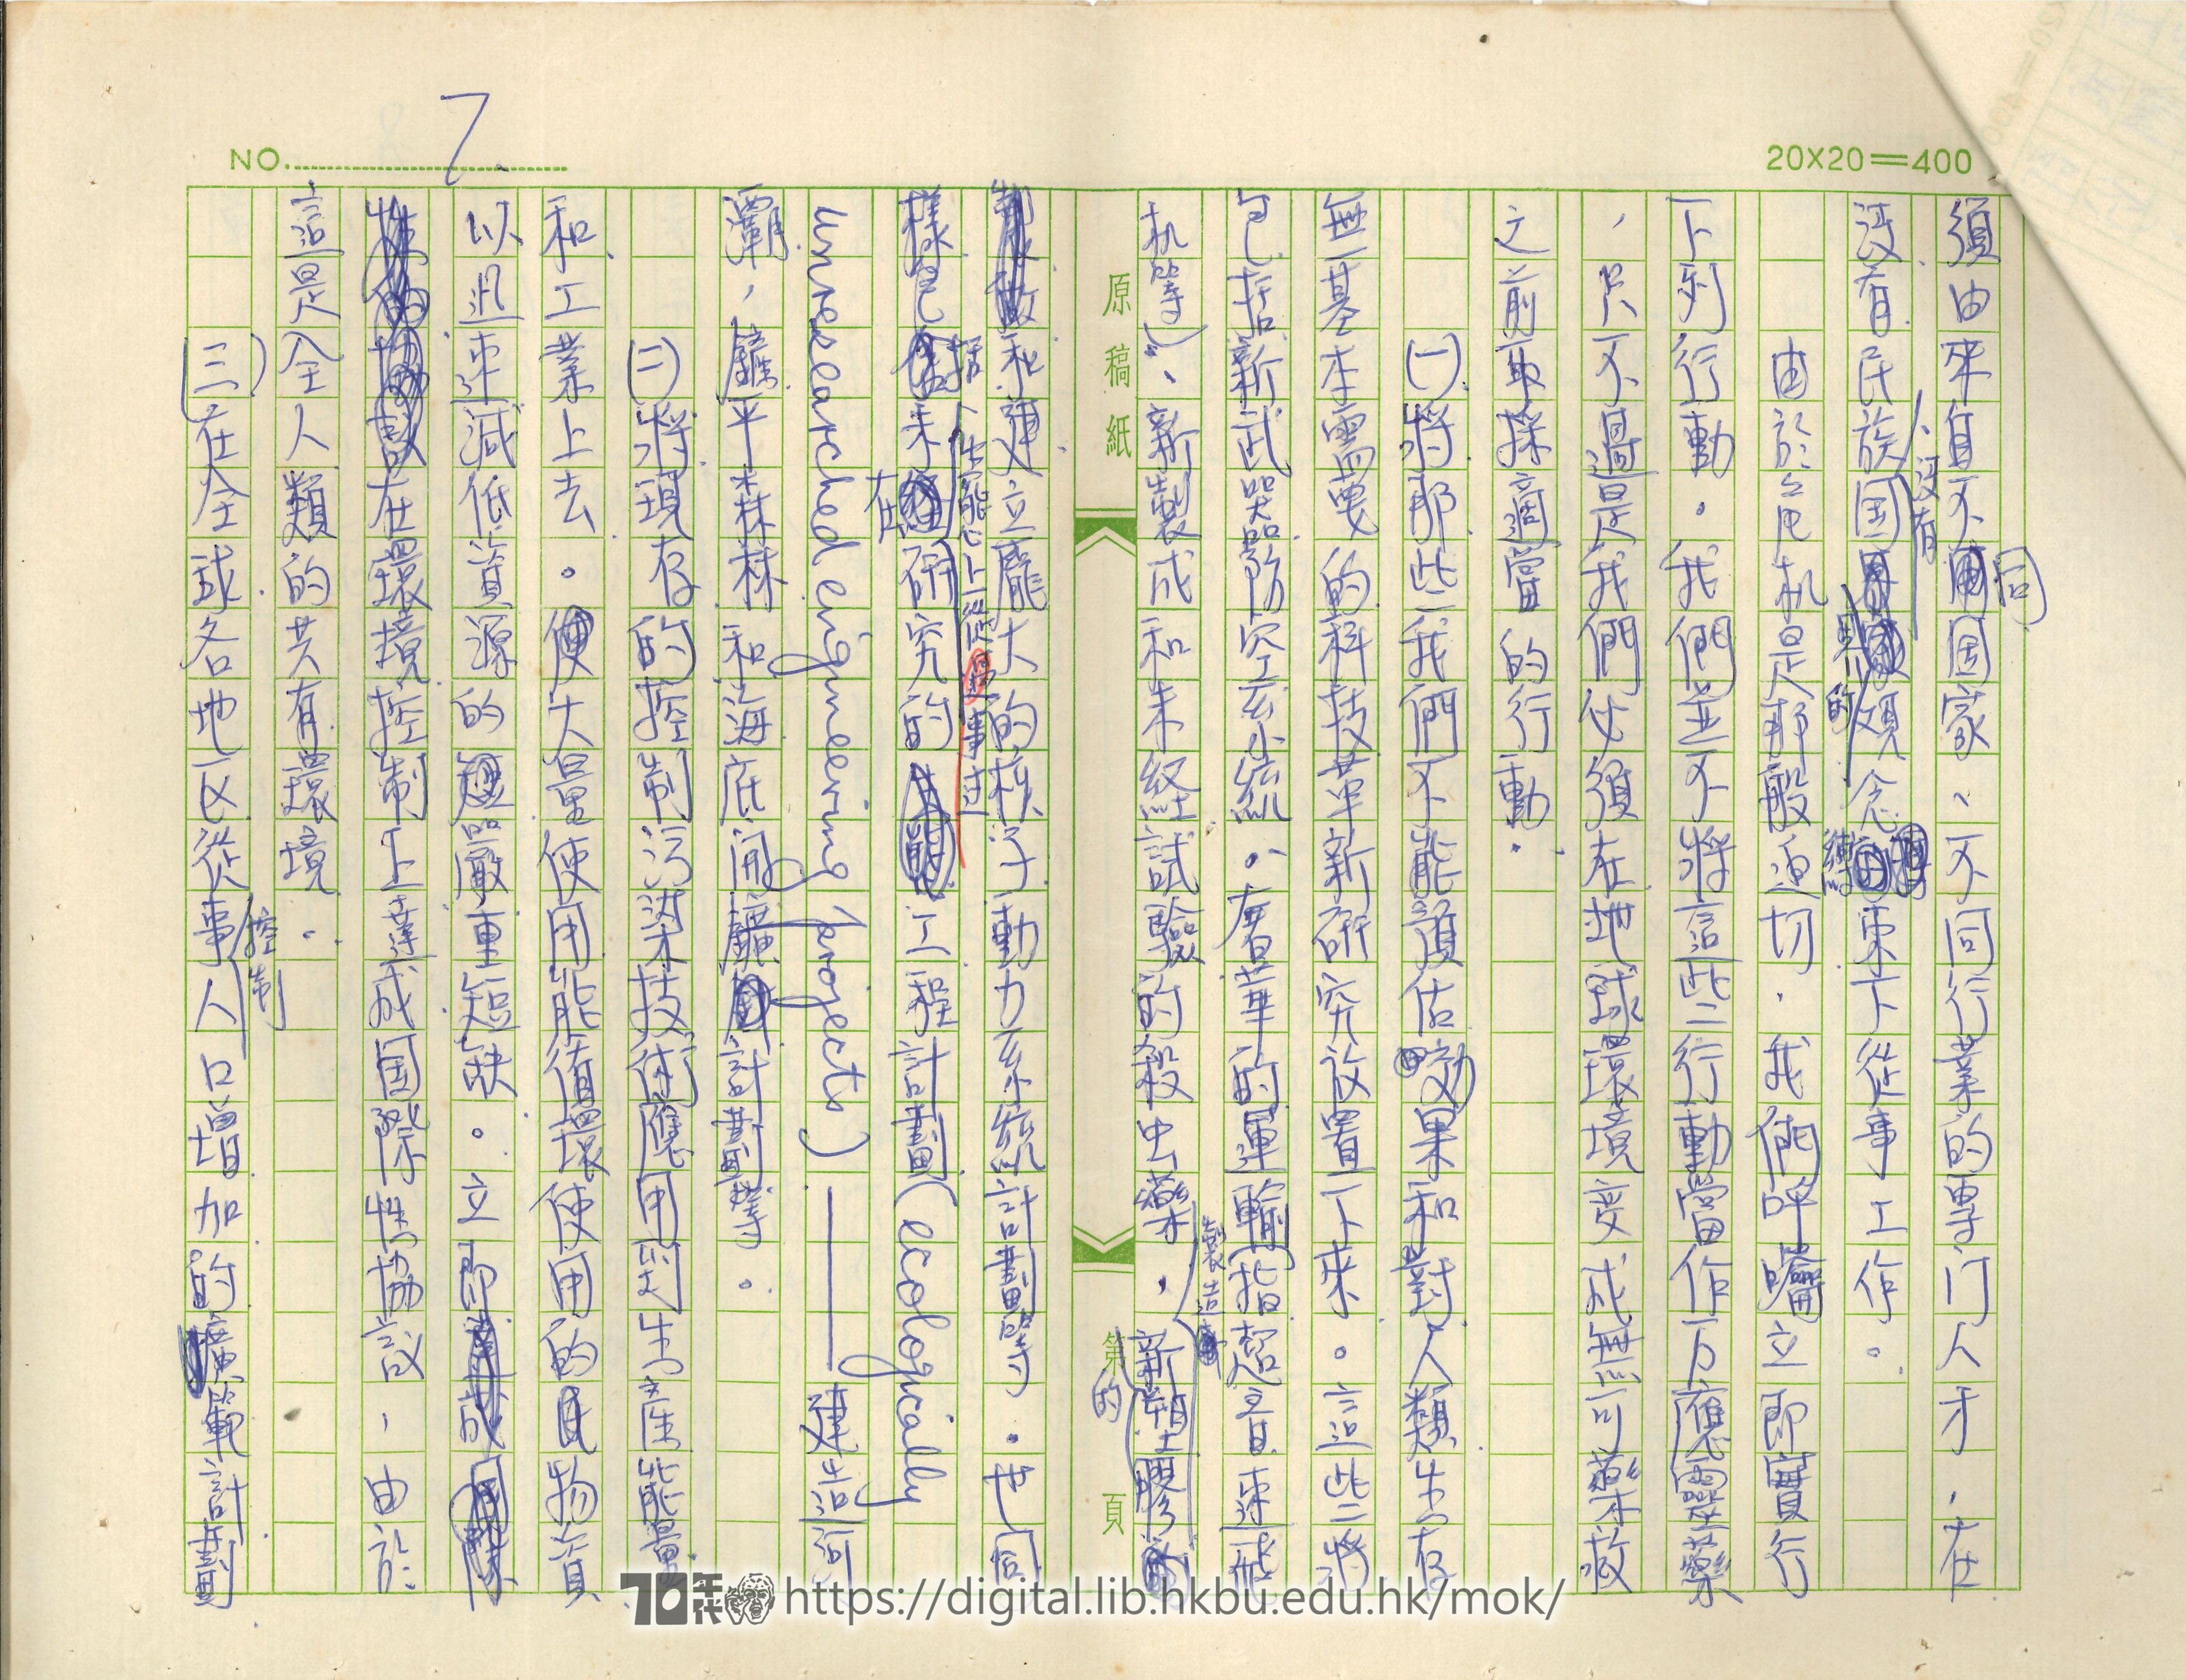 NO. 7.
20X20=400
須由來自不同国家、不同行業的專门人才,在
没有民族、没有国界的顧念束縛下從事工作。
由於危机是那般迫切.我們呼矚立即實行
下列行動。我們並不將這些行動當作万應靈藥
,只不過是我們必須在地球環境变成無可藥救
之前取採適當的行動。
(一)將那些我們不能預估效果和對人類生存
無基本需要的科技革新研究放置下來。這些將
包括新武器防空系統。奢華的運輸(指超音速飛
机等)、新製成和未経試驗的殺虫藥。新塑膠的製造
和建立龐大的核子動力系統計劃等。也同
樣包括未在生態上從事过研究的工程計劃(ecologically
unresearched engineering projects)——建造河
壩,鏟平森林和海底開鑛計劃等。
(二)將現存的控制污染技術應用到生產能量
和工業上去。大量使用能循環使用的物資
以迅速減低資源的嚴重短缺。立即
在環境控制上達成国際性協議,由於
這是全人類的共有環境。
(三)在全球各地区從事控制人口增加的廣範計劃
原稿紙
第 頁
70年代 https://digital.lib.hkbu.edu.hk/mok/